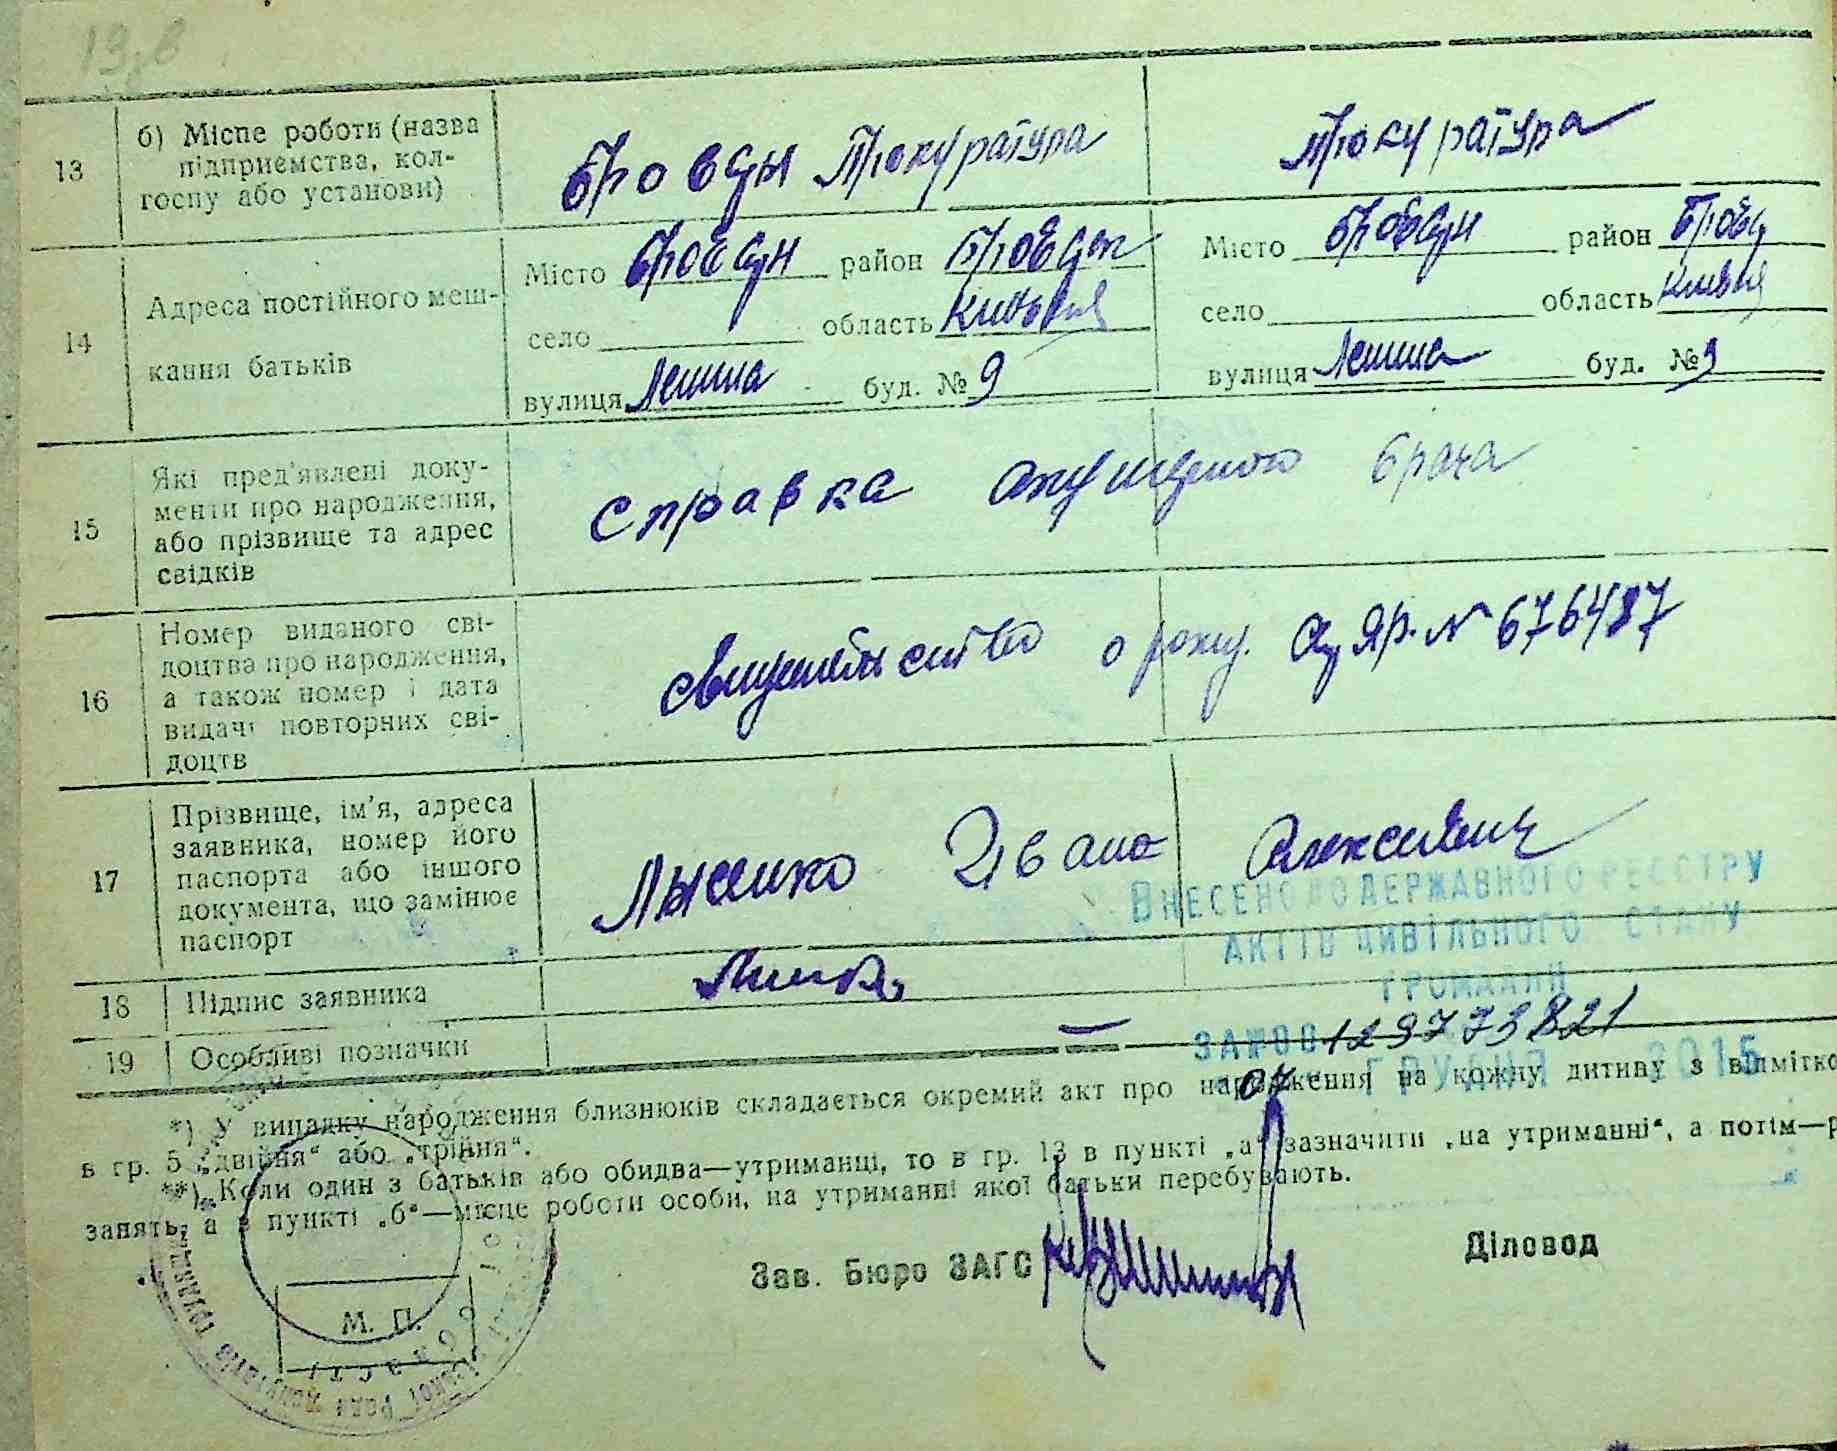 13 б) Місце роботи (назва
підприємства, кол-
госпу або установи)
Бровары Прокуратура
Прокуратура
14 Адреса постійного меш-
кання батьків
Місто Бровари район Бровар
село область Киевск
вулиця Ленина буд. № 9
Місто Бровари район Бровар
село область Киевск
вулиця Ленина буд. № 9
15 Які пред'явлені доку-
менти про народження,
або прізвище та адрес
свідків
Справка врача
16 Номер виданого сві-
доцтва про народження,
а також номер і дата
видачі повторних сві-
доцтв
свидетельство о рожд. ЯР. N 676487
17 Прізвище, ім'я, адреса
заявника, номер його
паспорта або іншого
документа, що замінює
паспорт
Лысенко Ивана Алексеевич
18 Підпис заявника
19 Особливі позначки
Внесено до Державного реєстру
актів цивільного стану
громадян
за № 00129773821
04 грудня 2015
*) У випадку народження близнюків складається окремий акт про народження на кожну дитину з відмітко
в гр. 5 „двійня“ або „трійня“.
**) Коли один з батьків або обидва—утриманці, то в гр. 13 в пункті „а“ зазначити „на утриманні“, а потім—р
занять, а в пункті „б“—місце роботи особи, на утриманні якої батьки перебувають.
Зав. Бюро ЗАГС
Діловод
М. П.